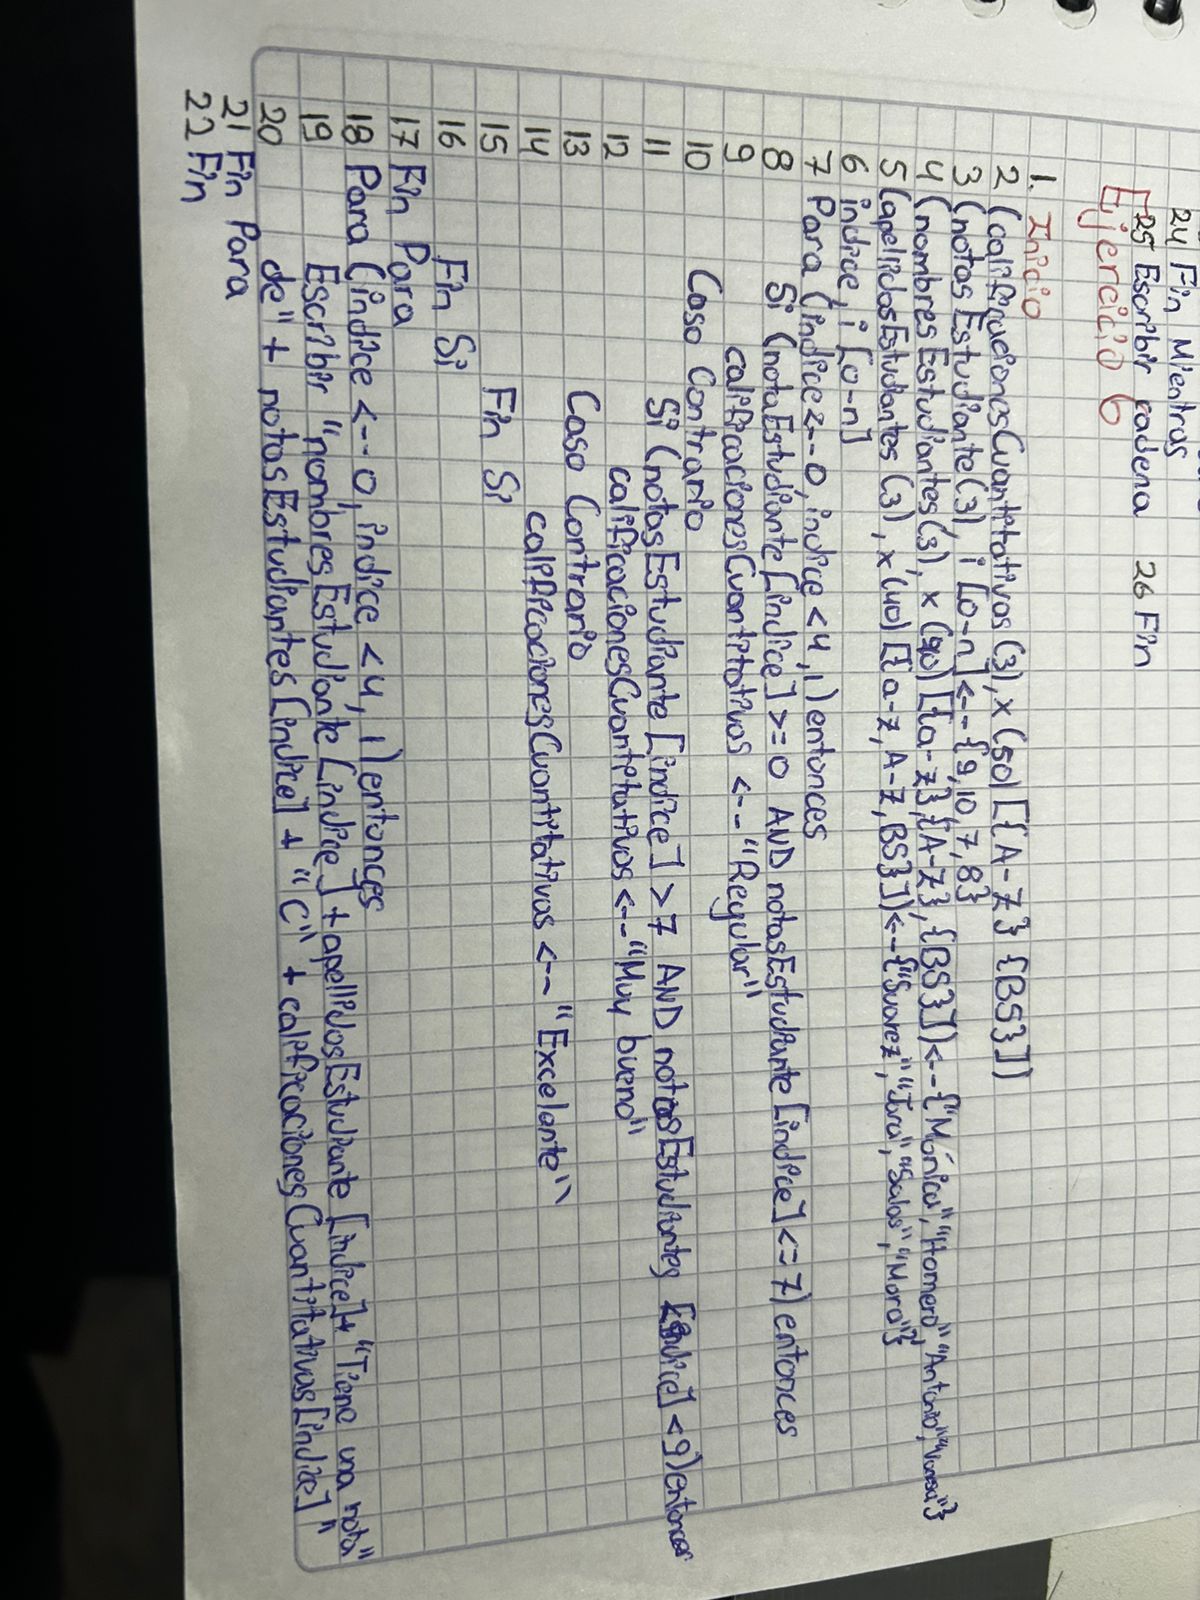 24 Fin Mientras
25 Escribir cadena 26 Fin
Ejercicio 6
1. Inicio
2 (calificacionesCuantitativos (3), x (50) [{A-Z} {BS}])
3 (notasEstudiante (3), i [0-n] <-- {9, 10, 7, 8}
4 (nombresEstudiantes (3), x (40) [{a-z}, {A-Z}, {BS}]) <-- {"Mónica", "Homero", "Antonio", "Vanesa"}
5 (apellidosEstudiantes (3), x (40) [{a-z, A-Z, BS}]) <-- {"Suarez", "Jura", "Salas", "Mora"}
6 indice, i [0-n]
7 Para (indice <-- 0, indice < 4, 1) entonces
8 Si (notaEstudiante [indice] >= 0 AND notasEstudiante [indice] <= 7) entonces
9 calificacionesCuantitativos <-- "Regular"
10 Caso Contrario
11 Si (notasEstudiante [indice] > 7 AND notasEstudiantes [indice] < 9) entonces
12 calificacionesCuantitativos <-- "Muy bueno"
13 Caso Contrario
14 calificacionesCuantitativos <-- "Excelante"
15 Fin Si
16 Fin Si
17 Fin Para
18 Para (indice <-- 0, indice < 4, 1) entonces
19 Escribir "nombresEstudiante [indice] + apellidosEstudiante [indice] + "Tiene una nota"
20 de" + notasEstudiantes [indice] + "C" + calificacionesCuantitativos [indice]"
21 Fin Para
22 Fin